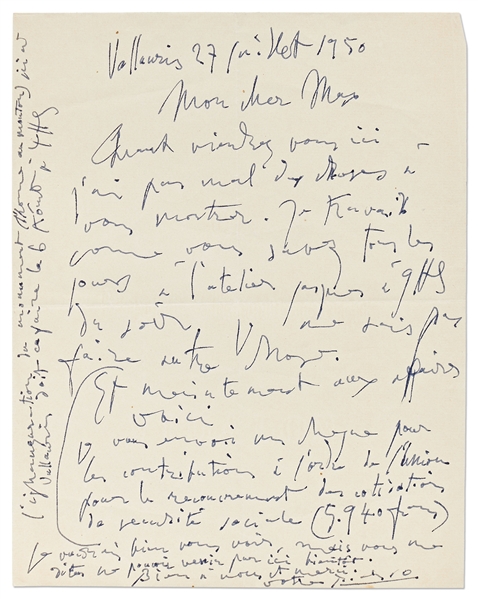 Vallauris 27 juillet 1950
Mon cher Max
Quand viendrez vous ici
j'ai pas mal de choses à
vous montrer. Je travail
come vous savez tous les
jours à l'atelier jusques à 9HS
du soir, ne sais pas
faire autre chose.
Et maintenant aux affaires
voici
je vous envoi un cheque pour
les contributions à l'ordre de l'Union
pour le recouvrement des cotisations
de securité sociale (5.940 frs)
Je voudrais bien vous voir mais vous me
dites ne pouvoir venir par ici bientôt.
Bien à vous et merci.
votre Picasso
l'ighnauguration du monument (Home au mouton) ici a
Vallauris doit ce faire le 6 Aout à 4HS